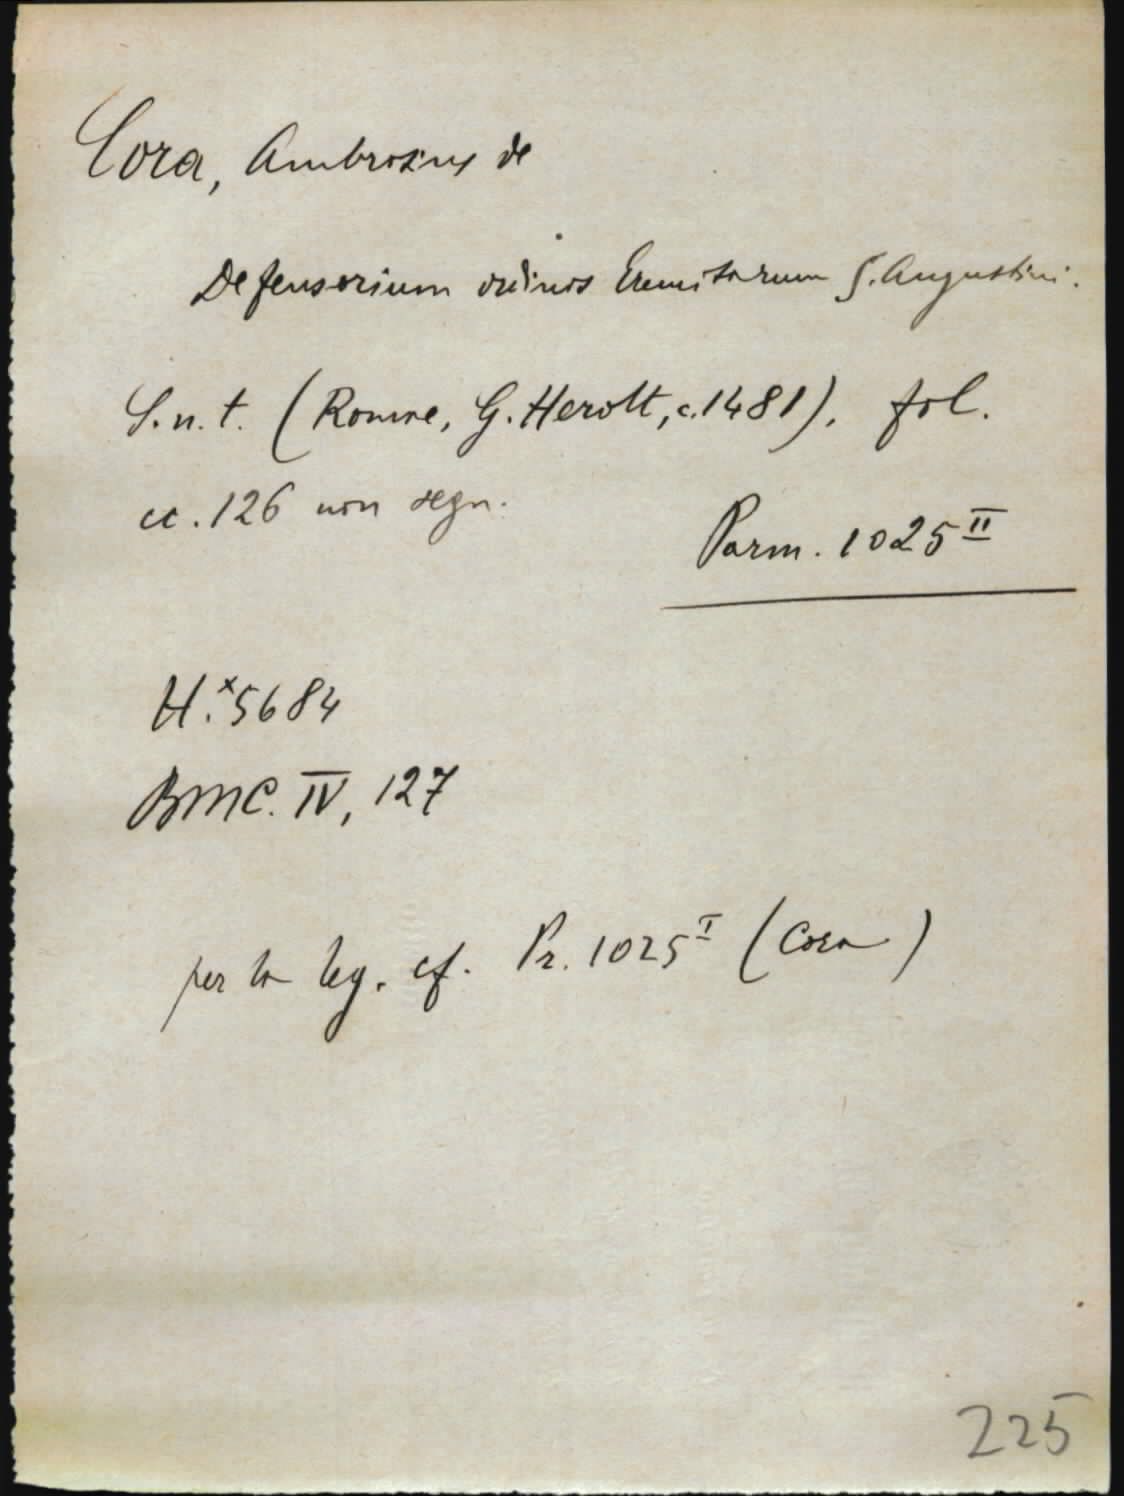 Cora, Ambrosius de
Defensorium ordinis Eremitarum S. Augustini.
S. n. t. (Romae, G. Herolt, c. 1481). fol.
cc. 126 non segn.
Parm. 1025 II
H. x 5684
BMC. IV, 127
per la leg. cf. Pr. 1025 I (Cora)
225